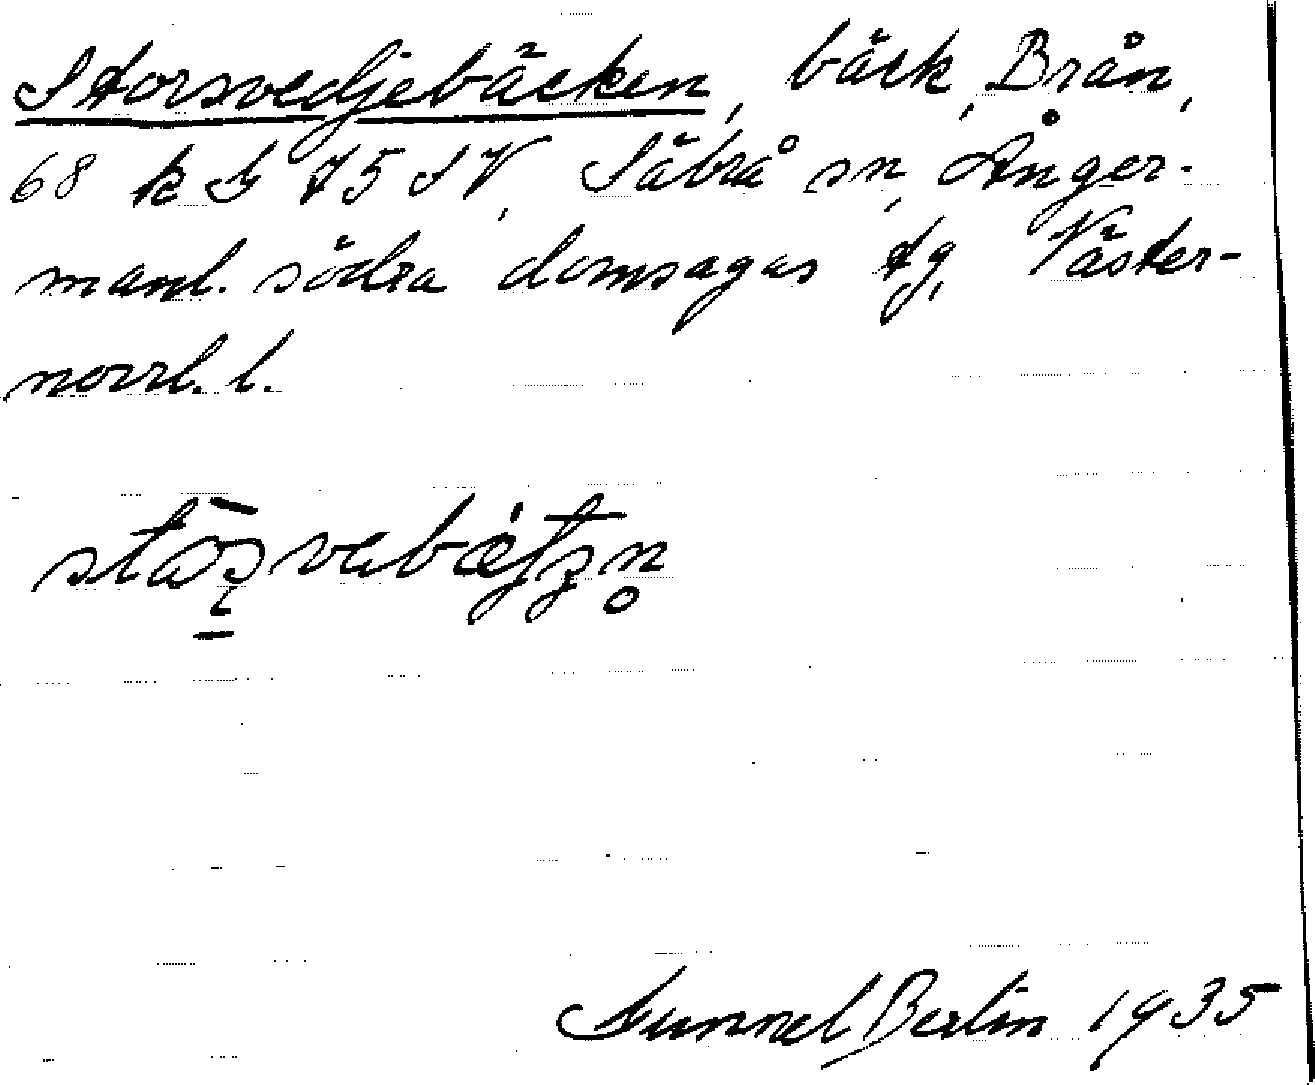 Storsvedjebäcken, bäck, Brån,
68 k G 75 SV, Säbrå sn, Ånger-
manl. södra domsagas tg, Väster-
norrl. l.
Gunnel Berlin 1935